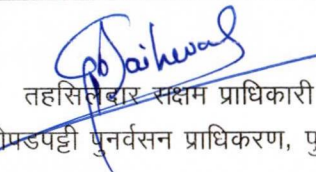 तहसिलदार सक्षम प्राधिकारी
ोपडपट्टी पुनर्वसन प्राधिकरण, पु